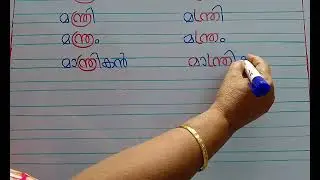 മന്ത്രി മന്ത്രി
മന്ത്രം മന്ത്രം
മാന്ത്രികൻ മാന്ത്രി